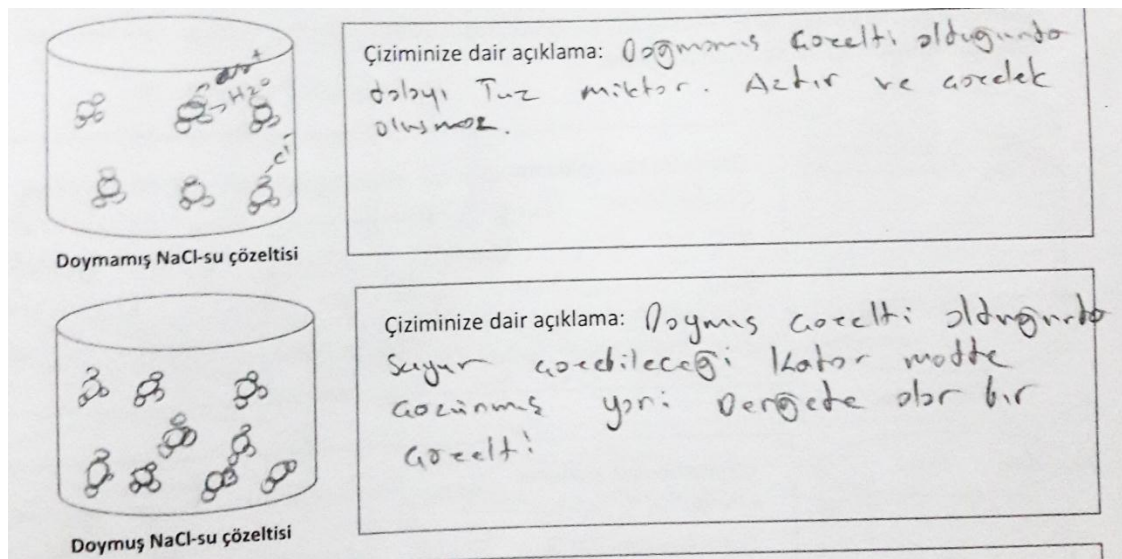 Na+
H2O
Cl
Doymamış NaCl-su çözeltisi
Çiziminize dair açıklama: Doğmamış çözelti olduğunda
dolayı Tuz miktar. Aztır ve çözelek
oluşmaz.
Doymuş NaCl-su çözeltisi
Çiziminize dair açıklama: Doymuş çözelti olduğunda
Suyun çözebileceği Kator madde
çözünmüş yani Dengede olan bir
çözelti